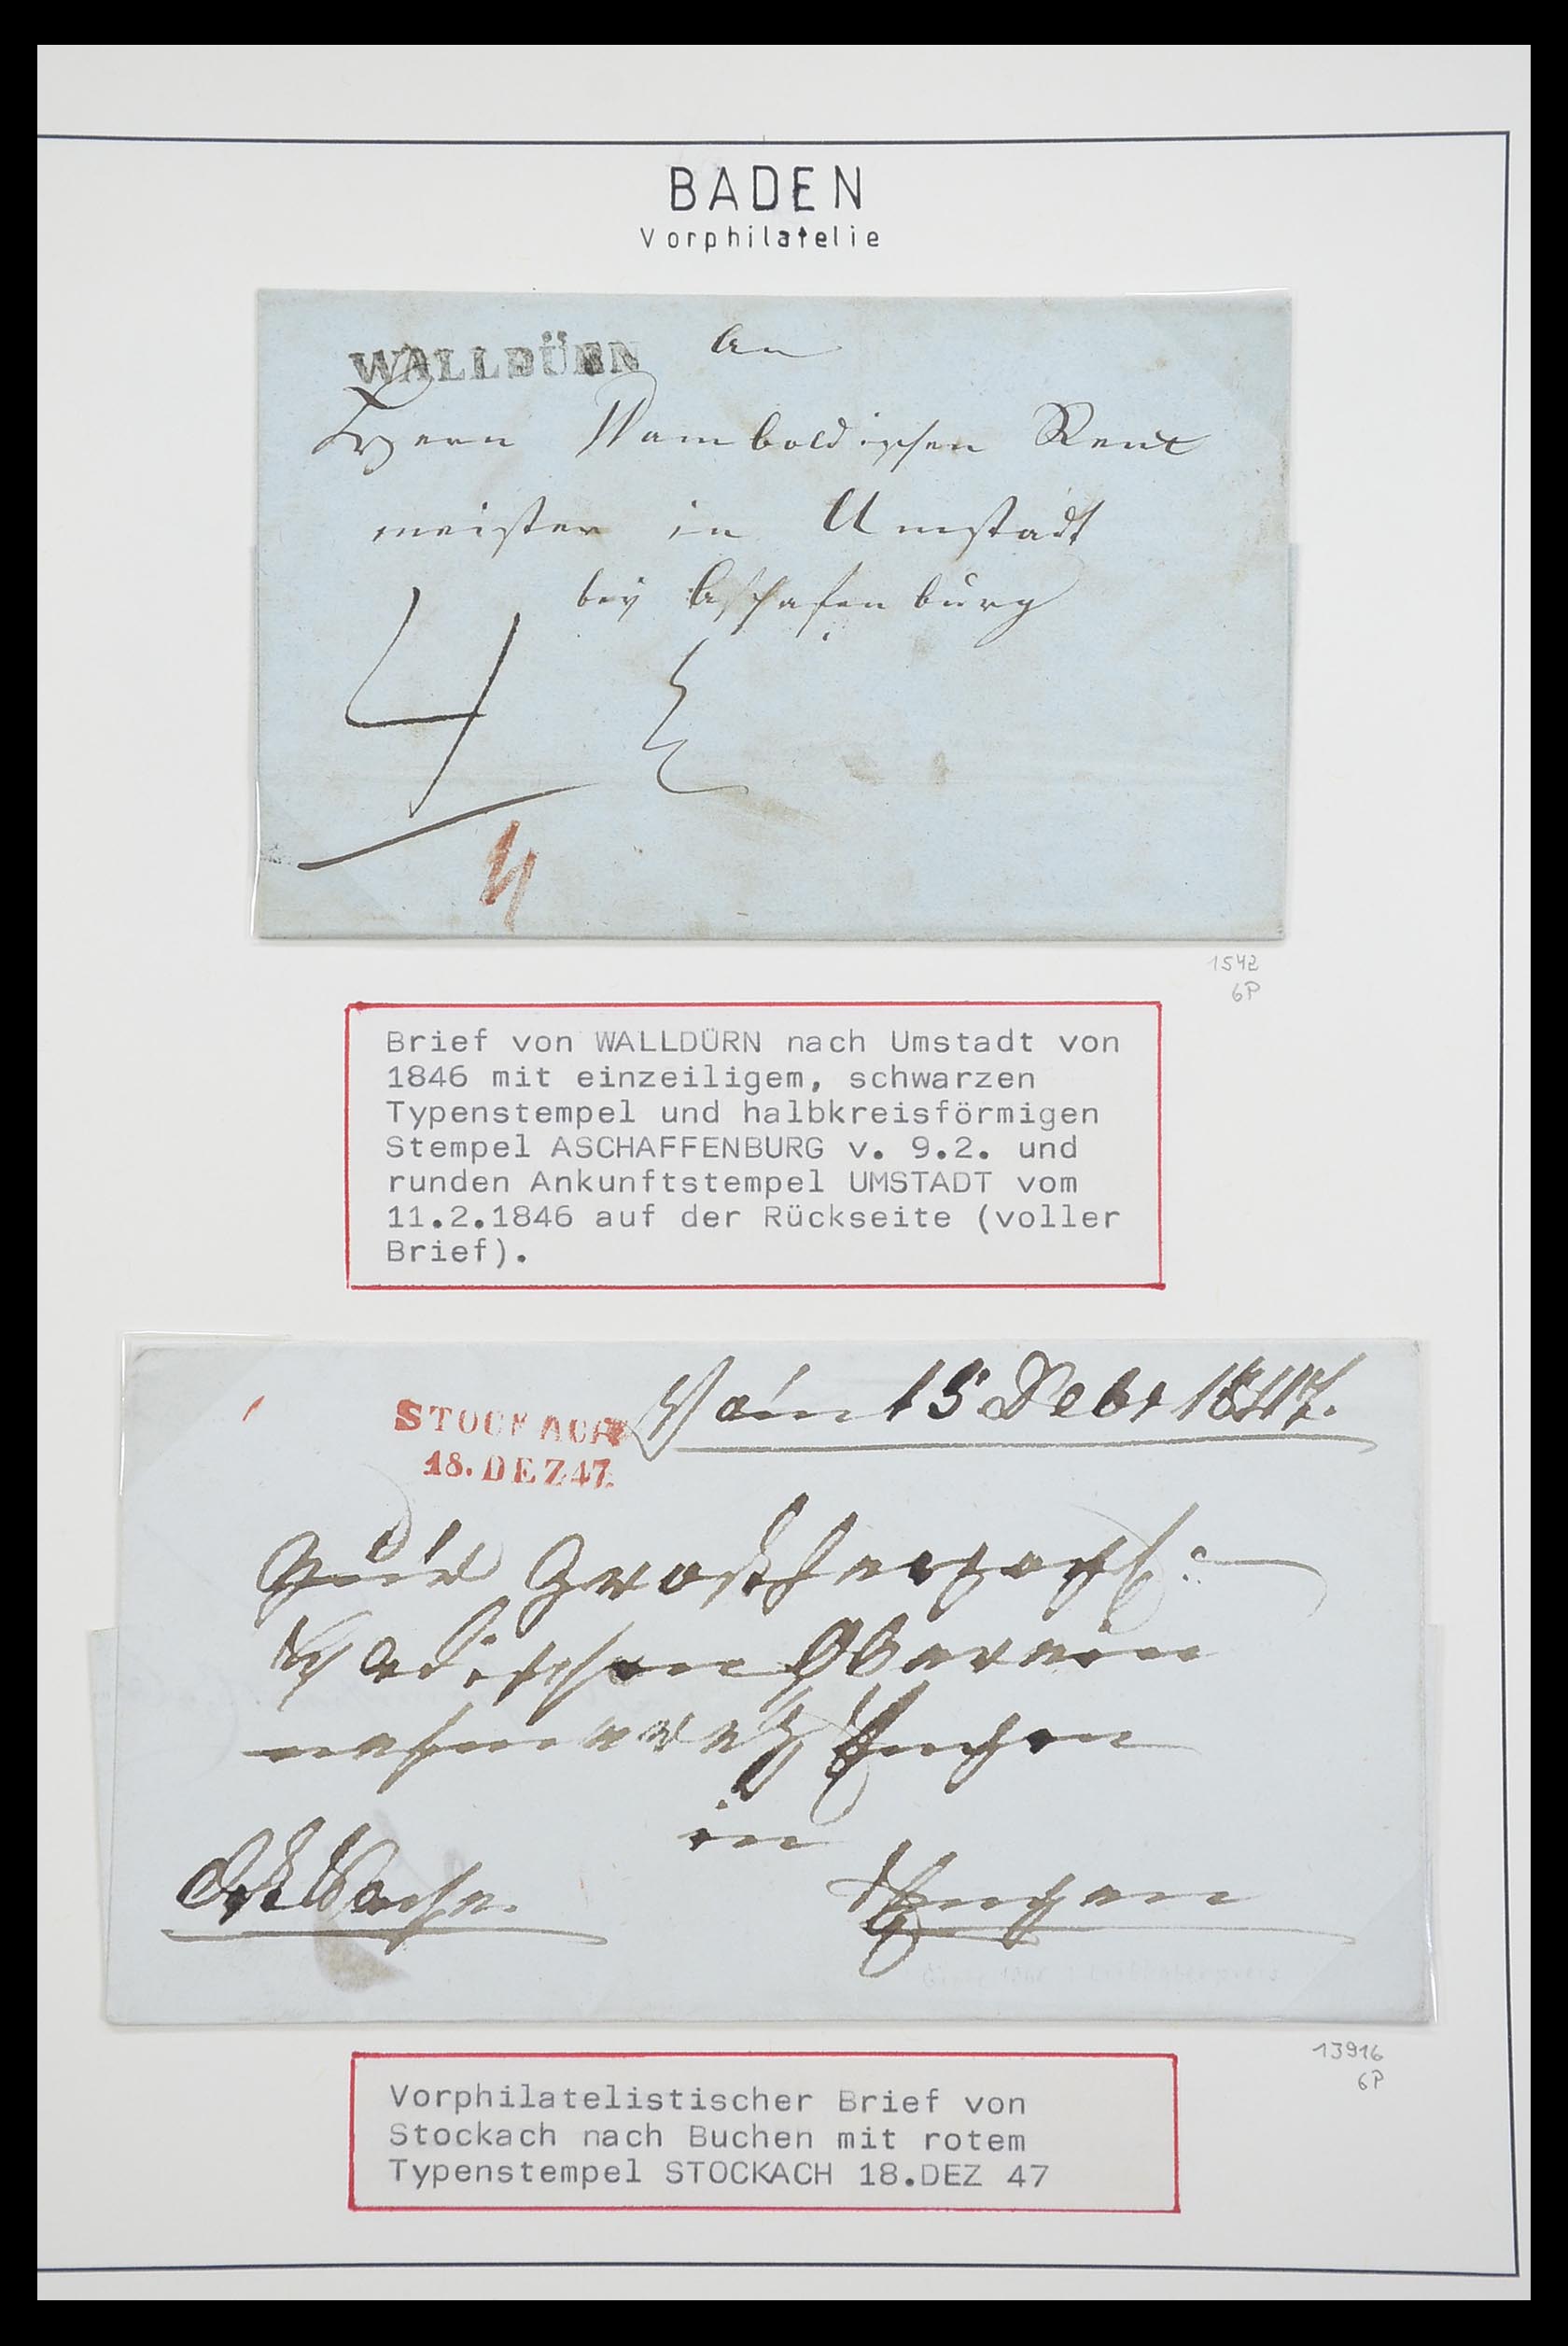 BADEN
Vorphilatelie
WALLDÜRN
An
Herrn Wamboldischen Rent
meister in Umstadt
bey Aschafenburg
4
1542
6P
Brief von WALLDÜRN nach Umstadt von
1846 mit einzeiligem, schwarzen
Typenstempel und halbkreisförmigen
Stempel ASCHAFFENBURG v. 9.2. und
runden Ankunftstempel UMSTADT vom
11.2.1846 auf der Rückseite (voller
Brief).
STOCKACH
18. DEZ 47.
Vom 15 Debr 1847.
Großherzogl:
Badischen Oberein
in
13916
6P
Vorphilatelistischer Brief von
Stockach nach Buchen mit rotem
Typenstempel STOCKACH 18.DEZ 47